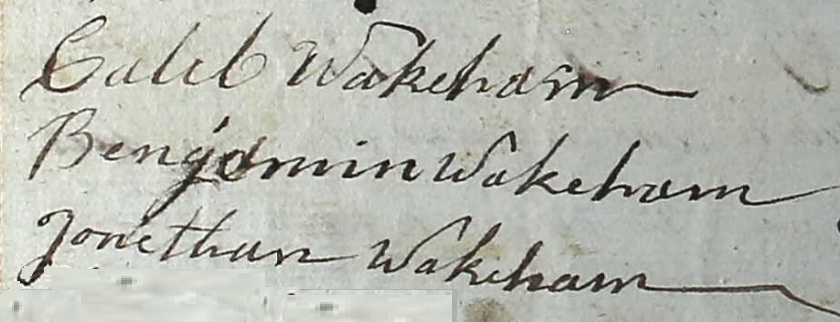 Caleb Wakeham
Bengjamin Wakeham
Jonethan Wakeham